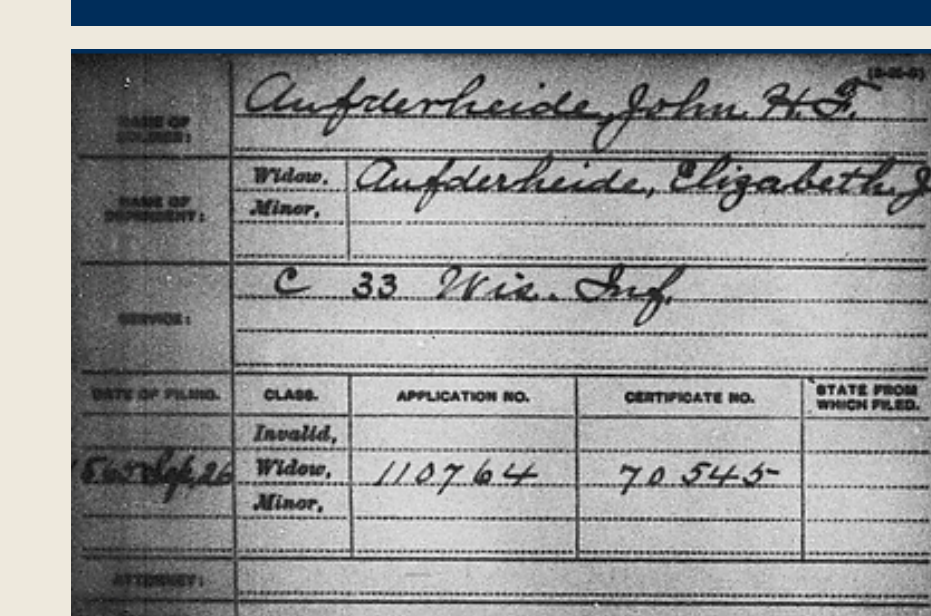 (3-26-0)
NAME OF SOLDIER: Aufderheide, John H. F.
NAME OF DEPENDENT: Widow, Aufderheide, Elizabeth J
Minor,
SERVICE: C 33 Wis. Inf.
DATE OF FILING. CLASS. APPLICATION NO. CERTIFICATE NO. STATE FROM WHICH FILED.
Invalid,
Sep, 26 Widow, 110764 70545
Minor,
ATTORNEY: